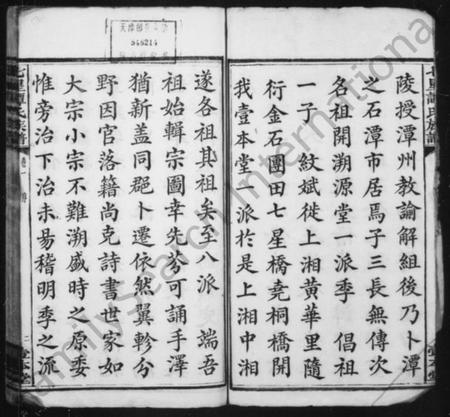 陵授潭州教諭解組後乃卜潭
之石潭市居焉子三長無傳次
名祖開溯源堂一派季 倡祖
一子 紋斌徙上湘黄華里隨
衍金石團田七星橋堯桐橋開
我壹本堂一派於是上湘中湘
遂各祖其祖矣至八派 端吾
祖始輯宗圖幸先芬可誦手澤
猶新蓋同郡卜遷依然翼軫分
野因官落籍尚克詩書世家如
大宗小宗不難溯盛時之原委
惟旁治下治未易稽明季之流
948214
FamilySearch International